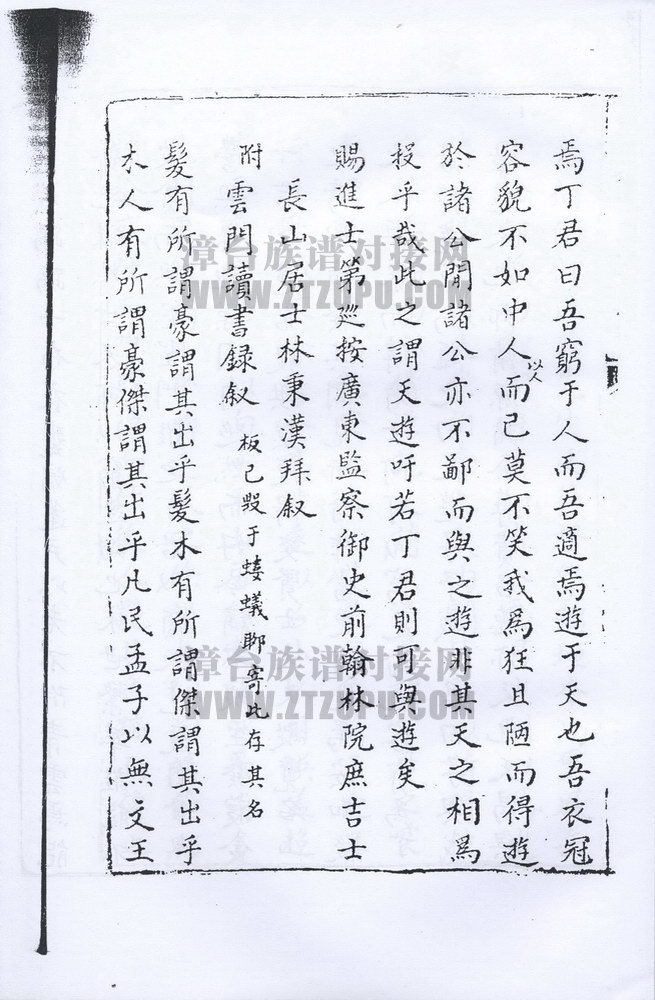 焉丁君曰吾窮于人而吾適焉遊于天也吾衣冠
容貌不如中人而已莫不笑我為狂且陋而得遊
以人
於諸公間諸公亦不鄙而與之遊非其天之相為
投乎哉此之謂天遊吁若丁君則可與遊矣
賜進士第廵按廣東監察御史前翰林院庶吉士
長山居士林秉漢拜叙
附雲門讀書録叙 板已毀于螻蟻聊寄此存其名
髮有所謂豪謂其出乎髮木有所謂傑謂其出乎
木人有所謂豪傑謂其出乎凡民孟子以無文王
漳台族谱对接网
WWW.ZTZUPU.COM
漳台族谱对接网
WWW.ZTZUPU.COM